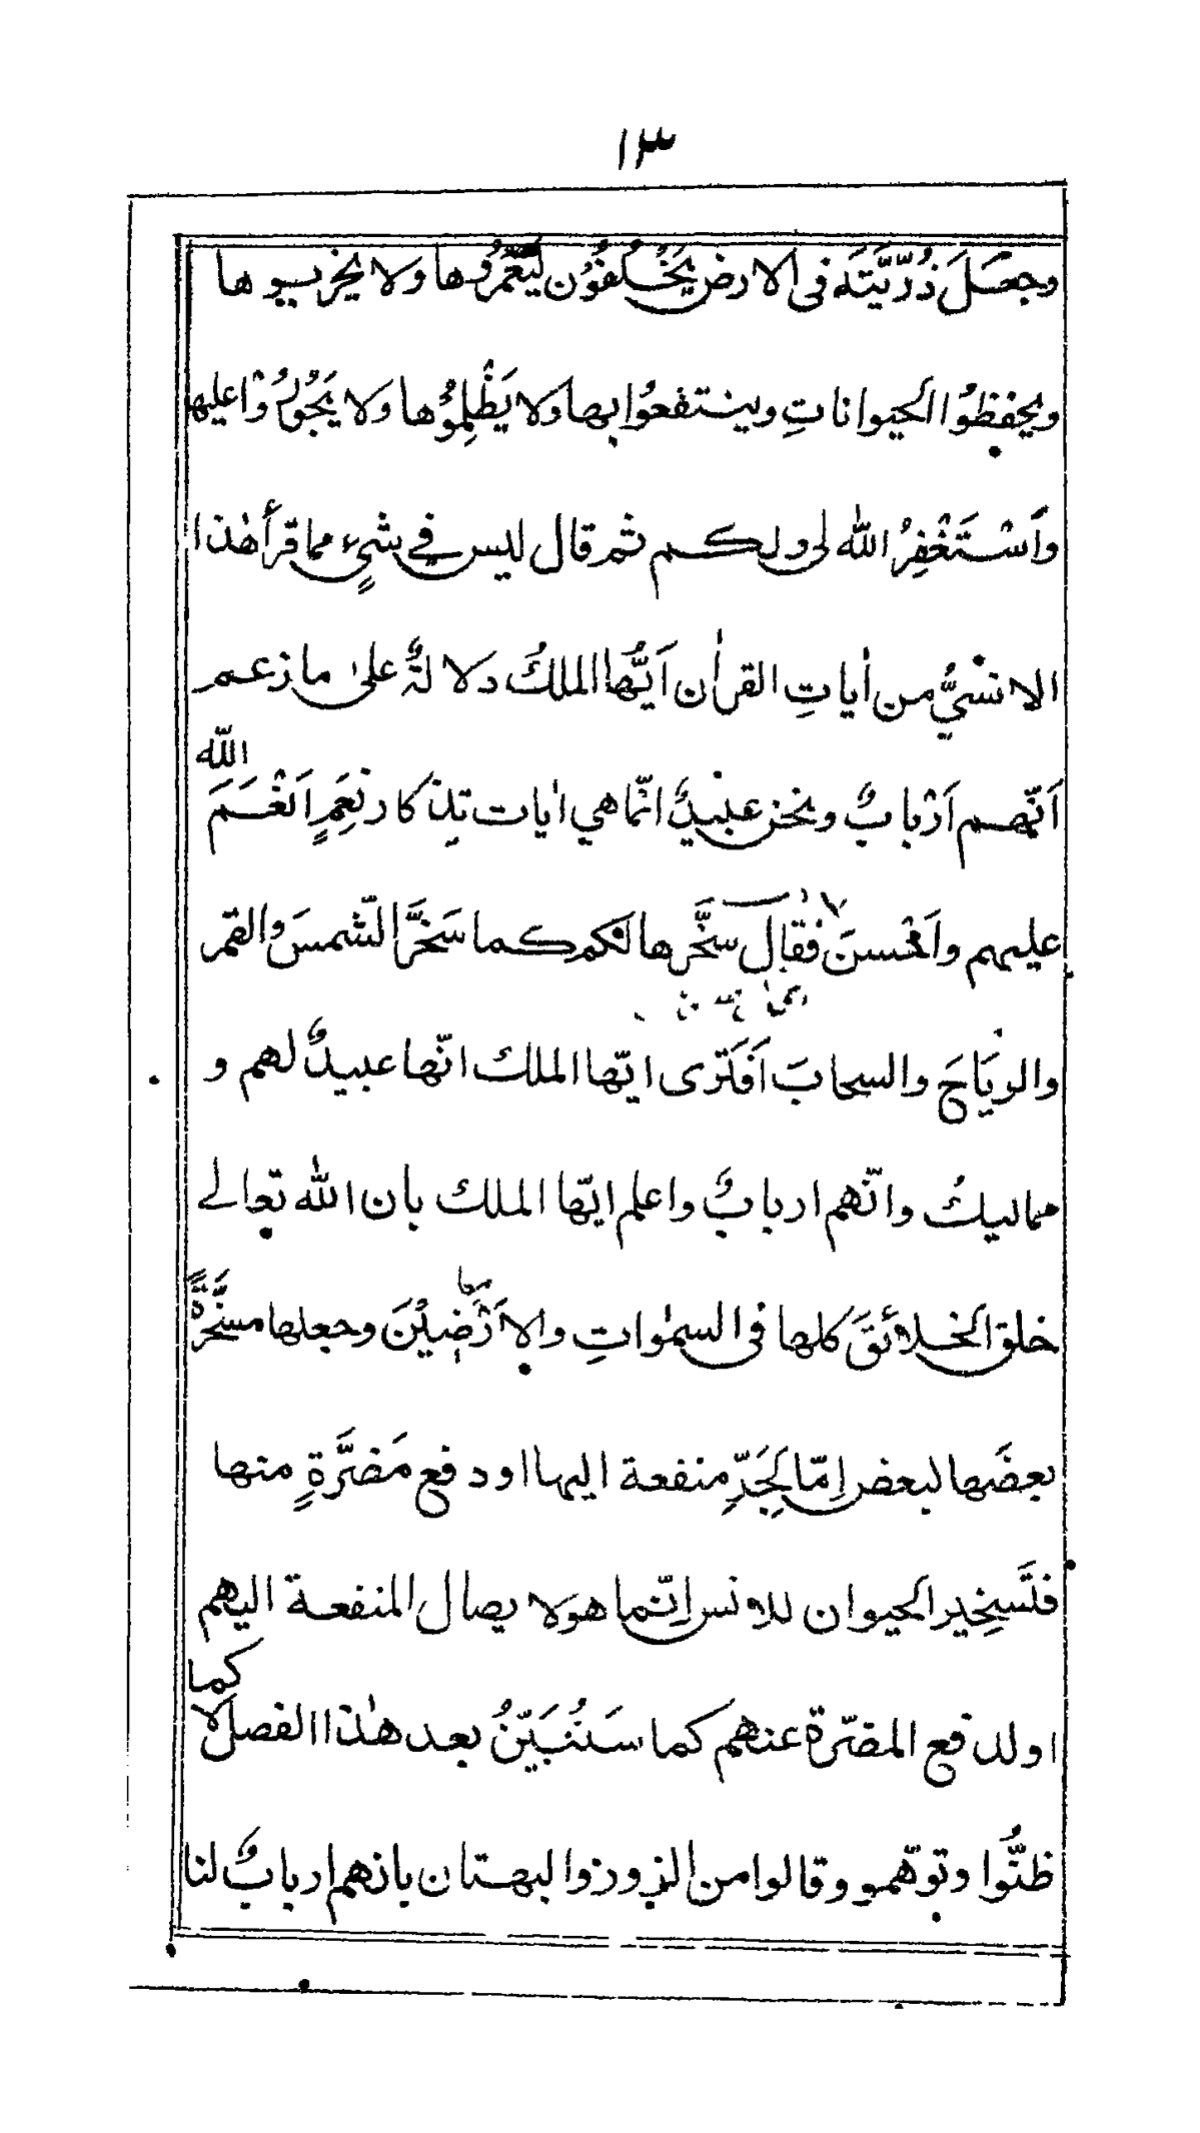 ١٣
وجعَلَ ذُرّيَّتَه فى الارض يَخْلُفُوْن لِيَعْمُرُوْها ولا يخربوها
ويحفظوُا الحيوانات وينتفعوُا بها ولا يَظْلِموُها ولا يَجُوْرُوْا عليها
وَاَسْتَغْفِرُ الله لى ولكم ثم قال ليس في شيءٍ مما قرأ هٰذا
الانسْيُّ من اٰياتِ القراٰن اَيُّها الملكُ دلالةٌ علىٰ ما زعم
اَنّهم اَرْبابٌ ونحن عبيدٌ انّما هي اٰيات تذكار نِعَمٍ اَنْعَمَ الله
عليهم واَحْسنَ فقال سخَّرها لكم كما سَخَّرَ الشّمسَ والقمر
والرِيَاحَ والسحابَ اَفَتَرى ايّها الملك انّها عبيدٌ لهم و
مماليكُ وانّهم اربابٌ واعلم ايّها الملك بان الله تعالے
خلق الخلائقَ كلها فى السمٰواتِ والاَرْضِيْنَ وجعلها مسخَّرَةً
بعضَها لبعض اِمّا لِجَرِّ منفعة اليها او دفع مَضرَّةٍ منها
فتَسخِير الحيوان للانس اِنّما هو لايصال المنفعة اليهم
او لدفع المضرّة عنهم كما سَنُبَيّنُ بعد هٰذا الفصل لا كما
ظنُّوا وتوهّمو وقالوا من الزور والبهتان بانهم اربابٌ لنا